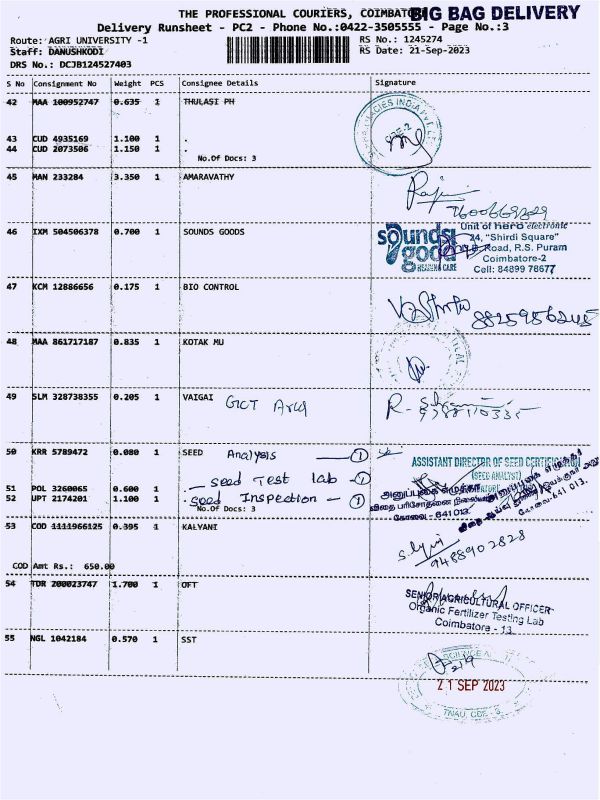 THE PROFESSIONAL COURIERS, COIMBATORE
BIG BAG DELIVERY
Delivery Runsheet - PC2 - Phone No.:0422-3505555 - Page No.:3
Route: AGRI UNIVERSITY -1
RS No.: 1245274
Staff: DANUSHKODI
RS Date: 21-Sep-2023
DRS No.: DCJB124527403
S No Consignment No Weight PCS Consignee Details Signature
42 MAA 100952747 0.635 1 THULASI PH
CBE-2
43 CUD 4935169 1.100 1 .
44 CUD 2073506 1.150 1 .
No.Of Docs: 3
45 MAN 233284 3.350 1 AMARAVATHY
46 IXM 504506378 0.700 1 SOUNDS GOODS
sounds good
HEARING CARE
Unit of hero electronic
24, "Shirdi Square"
Road, R.S. Puram
Coimbatore-2
Cell: 84899 78677
47 KCM 12886656 0.175 1 BIO CONTROL
48 MAA 861717187 0.835 1 KOTAK MU
49 SLM 328738355 0.205 1 VAIGAI
50 KRR 5789472 0.080 1 SEED Analysis — 1
ASSISTANT DIRECTOR OF SEED CERTIFICATION
(SEED ANALYST)
51 POL 3260065 0.600 1 . — seed Test lab — 1
52 UPT 2174201 1.100 1 . seed Inspection — 1
No.Of Docs: 3
விதை பரிசோதனை நிலையம்
கோவை - 641 013.
கோவை-641 013.
53 COD 1111966125 0.395 1 KALYANI
9488902828
COD Amt Rs.: 650.00
54 TDR 200023747 1.700 1 OFT
SENIOR AGRICULTURAL OFFICER
Organic Fertilizer Testing Lab
Coimbatore - 13.
55 NGL 1042184 0.570 1 SST
21 SEP 2023
TNAU, CBE - 3.